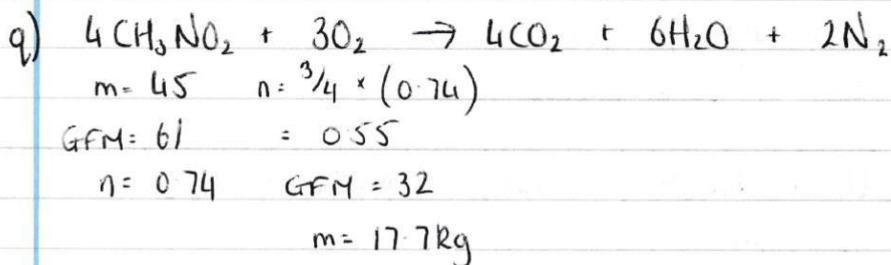 q) 4CH₃NO₂ + 3O₂ → 4CO₂ + 6H₂O + 2N₂
m= 45 n= 3/4 × (0.74)
GFM= 61 = 0.55
n= 0.74 GFM = 32
m= 17.7kg